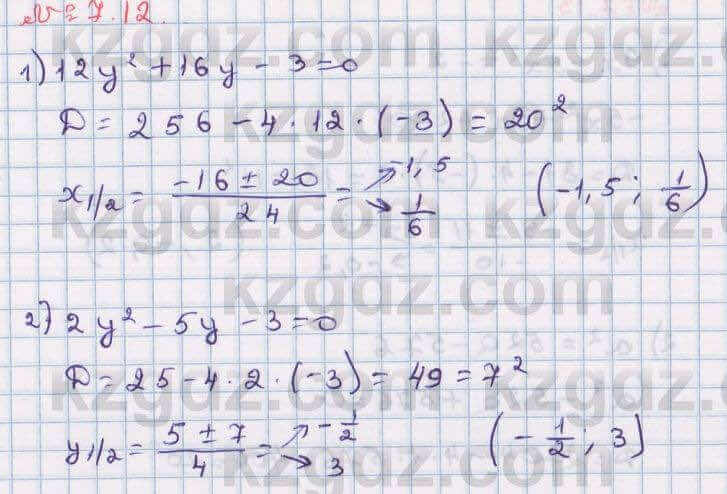 № 7.12.
1) 12y² + 16y - 3 = 0
D = 256 - 4 · 12 · (-3) = 20²
x₁/₂ = (-16 ± 20)/24 = ↗ -1,5 ↘ 1/6 (-1,5; 1/6)
2) 2y² - 5y - 3 = 0
D = 25 - 4 · 2 · (-3) = 49 = 7²
y₁/₂ = (5 ± 7)/4 = ↗ -1/2 ↘ 3 (-1/2; 3)
kzgdz.com
kzgdz.com
kzgdz.com
kzgdz.com
kzgdz.com